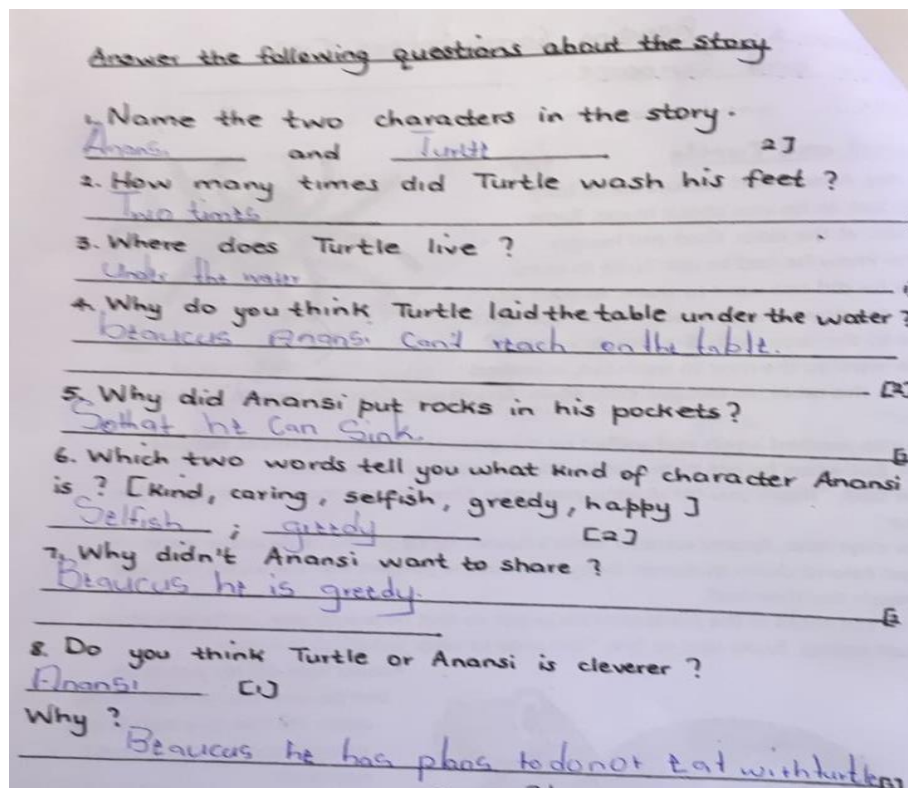 Answer the following questions about the story
1. Name the two characters in the story.
Anansi and Turtle 2]
2. How many times did Turtle wash his feet ?
Two times
3. Where does Turtle live ?
Under the water
4. Why do you think Turtle laid the table under the water ?
beaucus Anansi Can't reach on the table.
[2]
5. Why did Anansi put rocks in his pockets ?
Sothat he Can Sink.
6. Which two words tell you what kind of character Anansi
is ? [Kind, caring, selfish, greedy, happy ]
Selfish ; greedy [2]
7. Why didn't Anansi want to share ?
Beaucus he is greedy.
8. Do you think Turtle or Anansi is cleverer ?
Anansi [1]
Why ?
Beaucus he has plans to donot eat with turtle